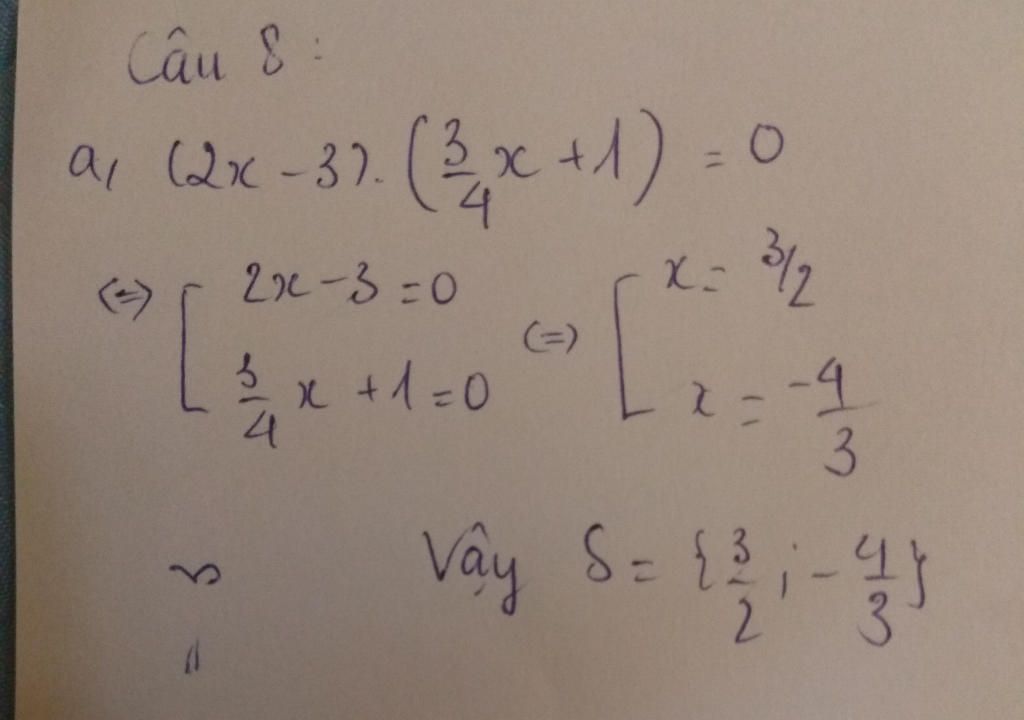 Câu 8:
a, (2x - 3). (3/4 x + 1) = 0
(=) [ 2x - 3 = 0 (=) [ x = 3/2
3/4 x + 1 = 0 x = -4/3
Vậy S = {3/2; -4/3}